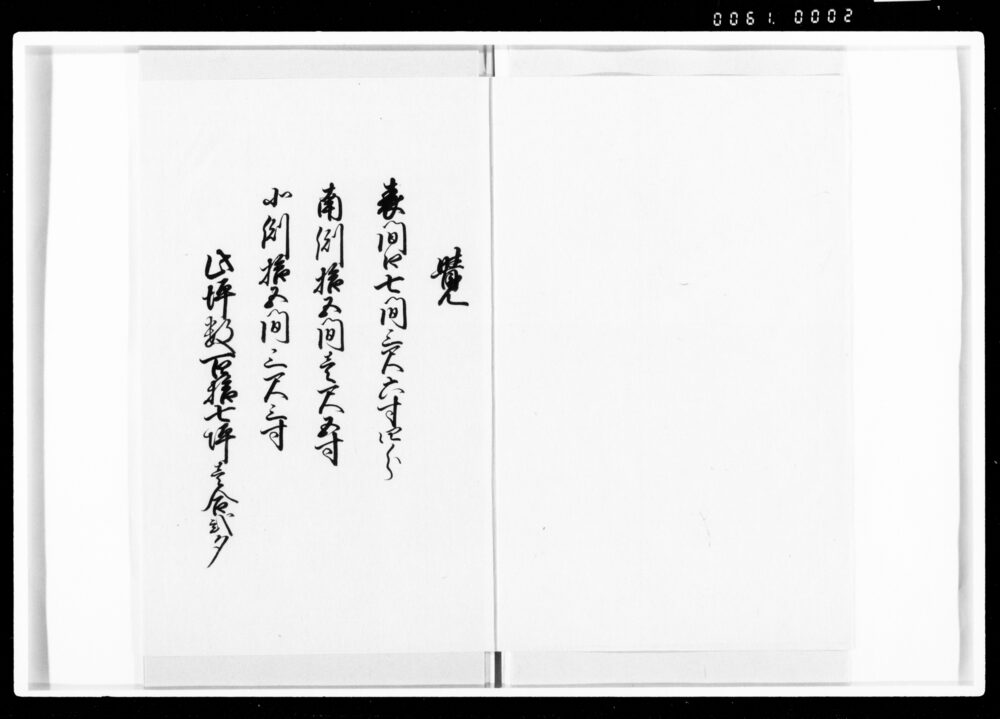 0061. 0002
覺
表間口七間三尺六寸四分
南側拾五間壱尺五寸
北側拾五間三尺三寸
此坪数百拾七坪壱合弐夕